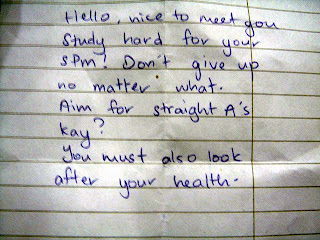 Hello, nice to meet you
Study hard for your
SPM! Don't give up
no matter what.
Aim for straight A's
kay?
You must also look
after your health.